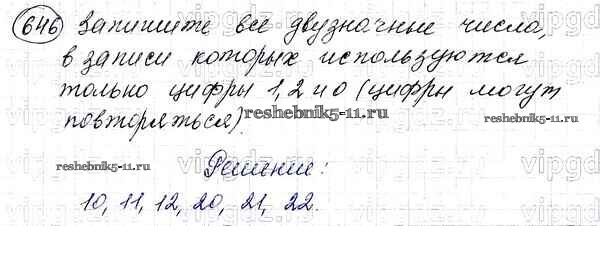 646 Запишите все двузначные числа,
в записи которых используются
только цифры 1, 2 и 0 (цифры могут
повторяться).
reshebnik5-11.ru
reshebnik5-11.ru reshebnik5-11.ru
Решение:
10, 11, 12, 20, 21, 22.